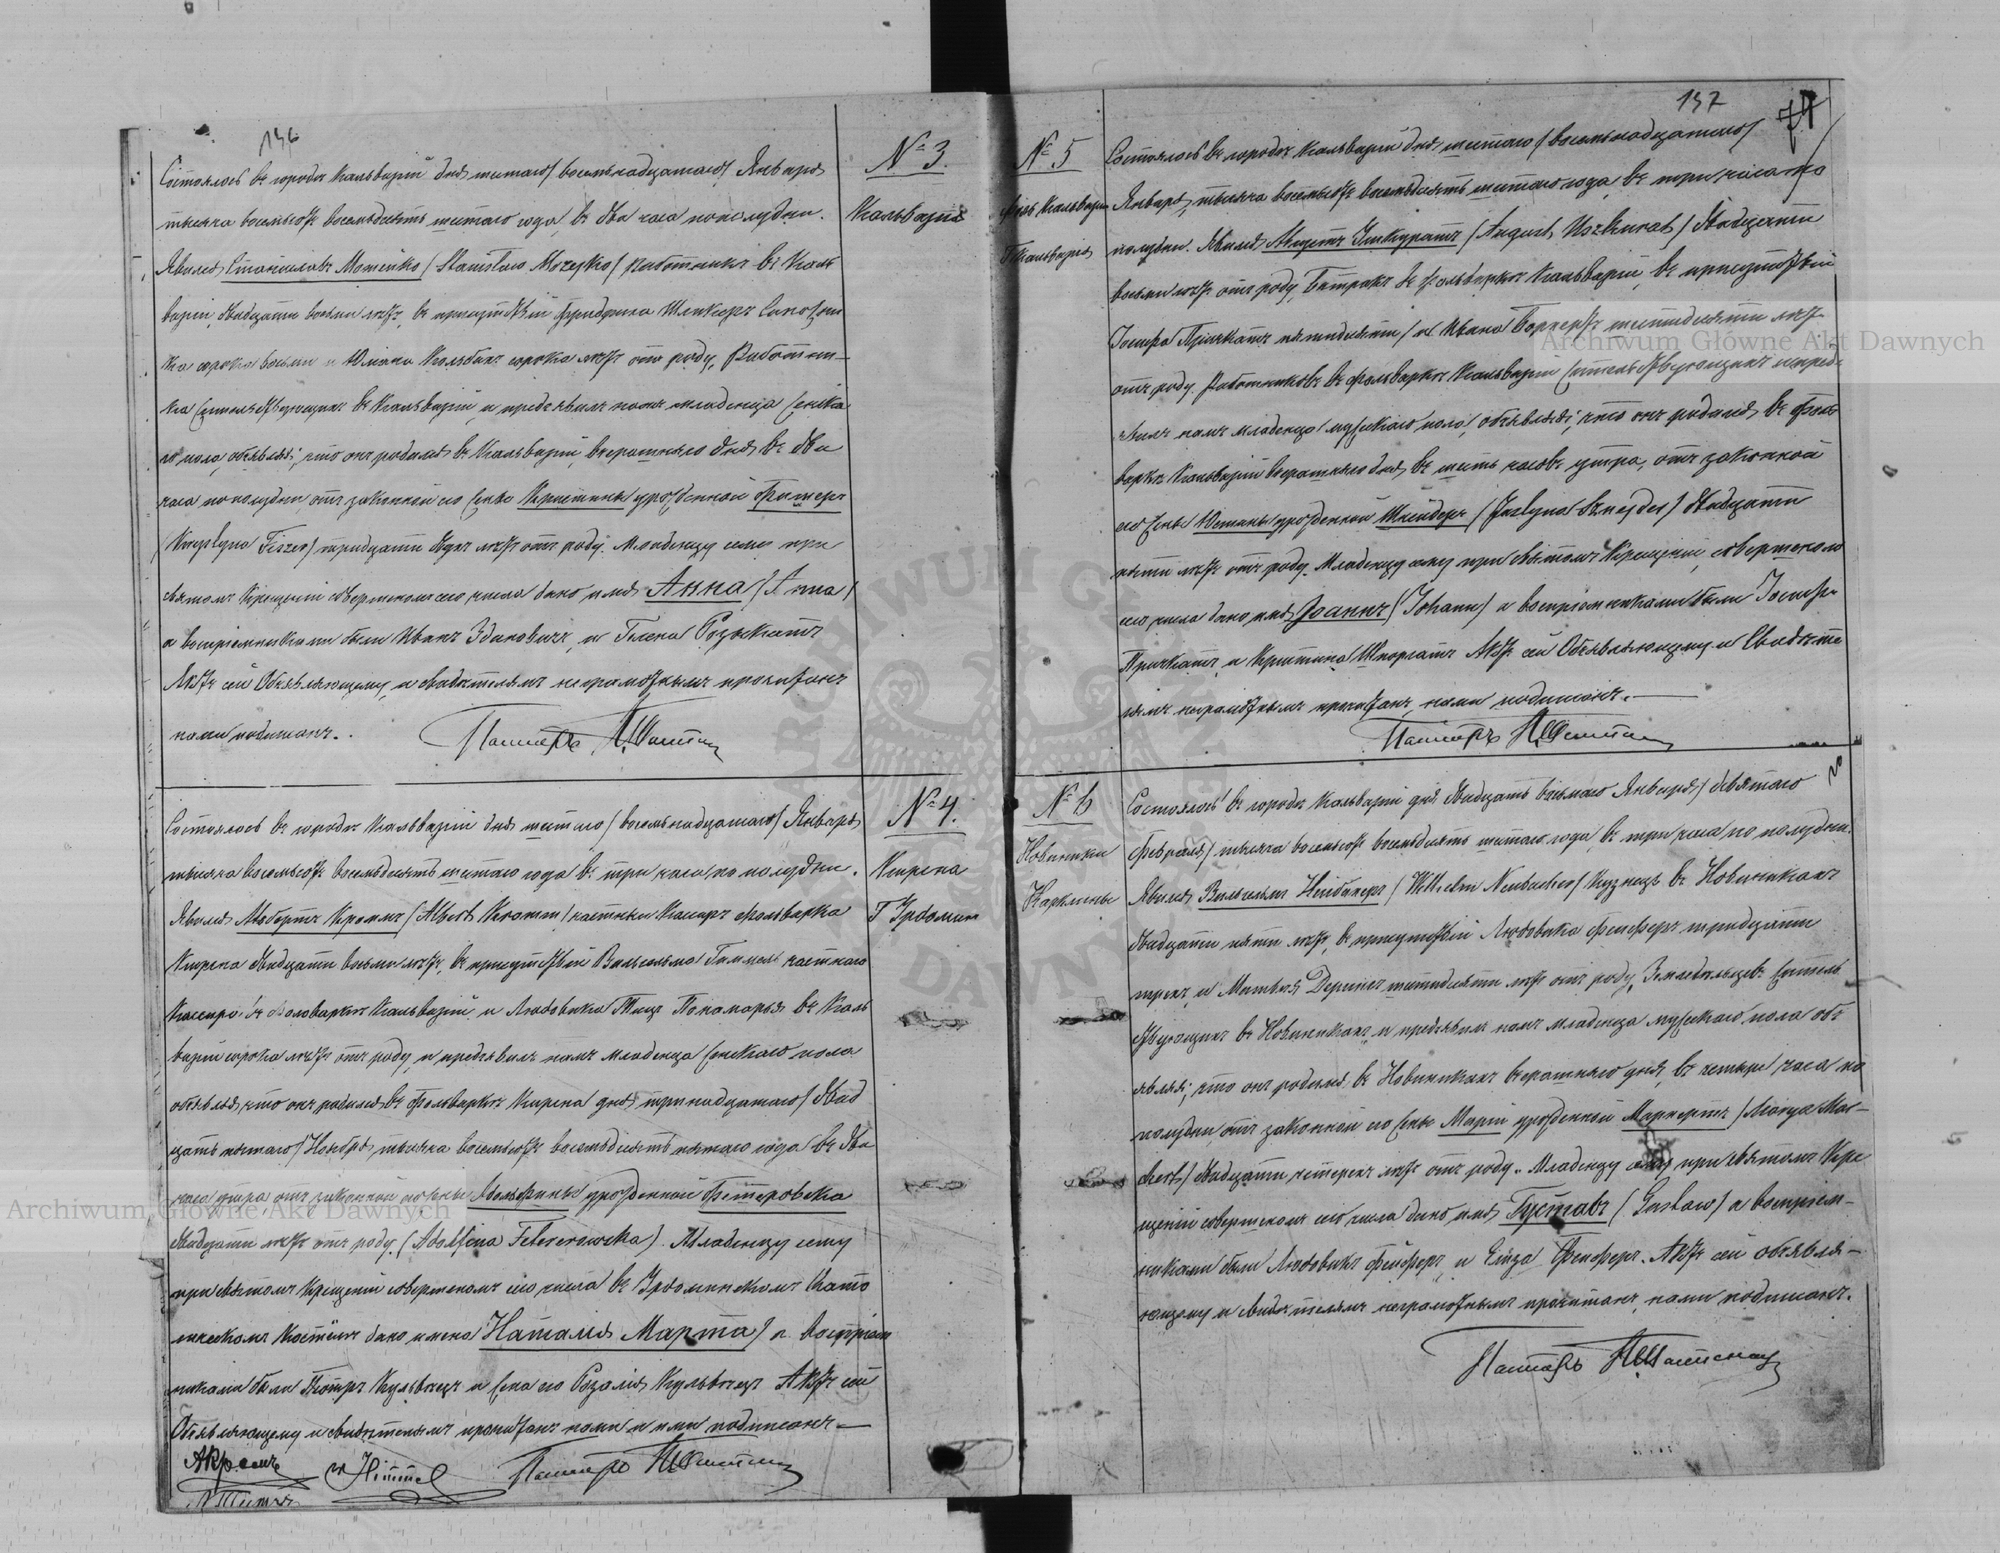 136
№ 3.
Кальварія
Состоялось въ городѣ Кальваріи дня шестаго / восемьнадцатаго / Января
тысяча восемьсотъ восемьдесятъ шестаго года, въ два часа пополудни.
Явился Станиславъ Можейко / Stanisław Mozejko / работникъ въ Каль
варіи, двадцати восьми лѣтъ, въ присутствіи Фридриха
ка сорока восьми и сорока лѣтъ отъ роду, работни-
ка жительствующихъ въ Кальваріи, и предъявилъ намъ младенца женска
го пола, объявляя, что онъ родился въ Кальваріи вчерашняго дня въ два
часа пополудни, отъ законной его жены Кристины урожденной Фишеръ
/ Krystyna Fiszer / тридцати двухъ лѣтъ отъ роду. Младенцу сему при
святомъ Крещеніи совершенномъ сего числа дано имя Анна / Anna /
а воспріемниками были Иванъ Здановичъ, и Елена
Актъ сей Объявляющему и свидѣтелямъ неграмотнымъ прочитанъ
нами подписанъ.
Пасторъ
№ 4.
Кирсна
Г Удрамин
Состоялось въ городѣ Кальваріи дня шестаго / восемьнадцатаго / Января
тысяча восемьсотъ восемьдесятъ шестаго года въ три часа по полудни.
Явился Альбертъ Кроммъ / Albert Kromm / частный Кассиръ фольварка
Кирсна двадцати восьми лѣтъ, въ присутствіи Вильгельма Гиммель частнаго
Кассира въ Фольваркѣ Кальваріи и Людовика Тицъ Пономаря въ Каль
варіи сорока лѣтъ отъ роду, и предъявилъ намъ младенца женскаго пола
объявляя, что онъ родился въ Фольваркѣ Кирсна дня тринадцатаго / двад
цать пятаго / Ноября тысяча восемьсотъ восемьдесятъ пятаго года въ два
часа утра отъ законной его жены Адольфины урожденной Фетеровска
двадцати лѣтъ отъ роду. (Adolfina Feterowska). Младенцу сему
при святомъ Крещеніи совершенномъ сего числа въ Удраминскомъ Като
лическомъ Костёлѣ даны имена Наталія Марта / а Воспріем
никами были Петръ и жена его Розалія Актъ сей
Объявляющему и свидѣтелямъ прочитанъ нами и ими подписанъ —
АКроммъ W Himmel Пасторъ
Л Тицъ
137
№ 5
фоль Кальварія
Г Кальварія
Состоялось въ городѣ Кальваріи дня шестаго / восемьнадцатаго /
Января, тысяча восемьсотъ восемьдесятъ шестаго года, въ три часа по
полудни. Явился Августъ Ушкуратъ / August Uszkurat / двадцати
восьми лѣтъ отъ роду, Батракъ въ фольваркѣ Кальваріи, въ присутствіи
Іосифа пятидесяти / и Ивана шестидесяти лѣтъ
отъ роду, работниковъ въ фольваркѣ Кальваріи жительствующихъ и предъ-
явилъ намъ младенца мужескаго пола, объявляя, что онъ родился въ Фоль
варкѣ Кальваріи вчерашняго дня въ шесть часовъ утра, отъ законной
его жены Юстины урожденной Шнейдеръ / Justyna Sznejder / двадцати
пяти лѣтъ отъ роду. Младенцу сему при святомъ Крещеніи, совершенномъ
сего числа дано имя Іоаннъ / Johann / а воспріемниками были Іосифъ
и Кристина Актъ сей Объявляющему и Свидѣте
лямъ неграмотнымъ прочитанъ, нами подписанъ. —
Пасторъ
№ 6
Новиники
Карклины
Состоялось въ городѣ Кальваріи дня двадцать восьмаго Января / девятаго
Февраля / тысяча восемьсотъ восемьдесятъ шестаго года, въ три часа по полудни.
Явился Вильгельмъ Нейбахеръ / Wilhelm Neubacher / Кузнецъ въ Новиникахъ
двадцати пяти лѣтъ, въ присутствіи Людовика Фейферъ тридцати
трехъ и Матвѣя шестидесяти лѣтъ отъ роду, Земледѣльцевъ жатель
ствующихъ въ Новиникахъ, и предъявилъ намъ младенца мужескаго пола объ
являя, что онъ родился въ Новиникахъ вчерашняго дня, въ четыре часа по
полудни, отъ законной его жены Маріи урожденной Маркертъ / Marya Mar-
kert / двадцати четырехъ лѣтъ отъ роду. Младенцу сему при святомъ Кре
щеніи совершенномъ сего числа дано имя Густавъ / Gustaw / а воспріем-
никами были Людовикъ Фейферъ, и Елиза Фейферъ. Актъ сей объявля-
ющему и свидѣтелямъ неграмотнымъ прочитанъ, нами подписанъ.
Пасторъ
Archiwum Główne Akt Dawnych
Archiwum Główne Akt Dawnych